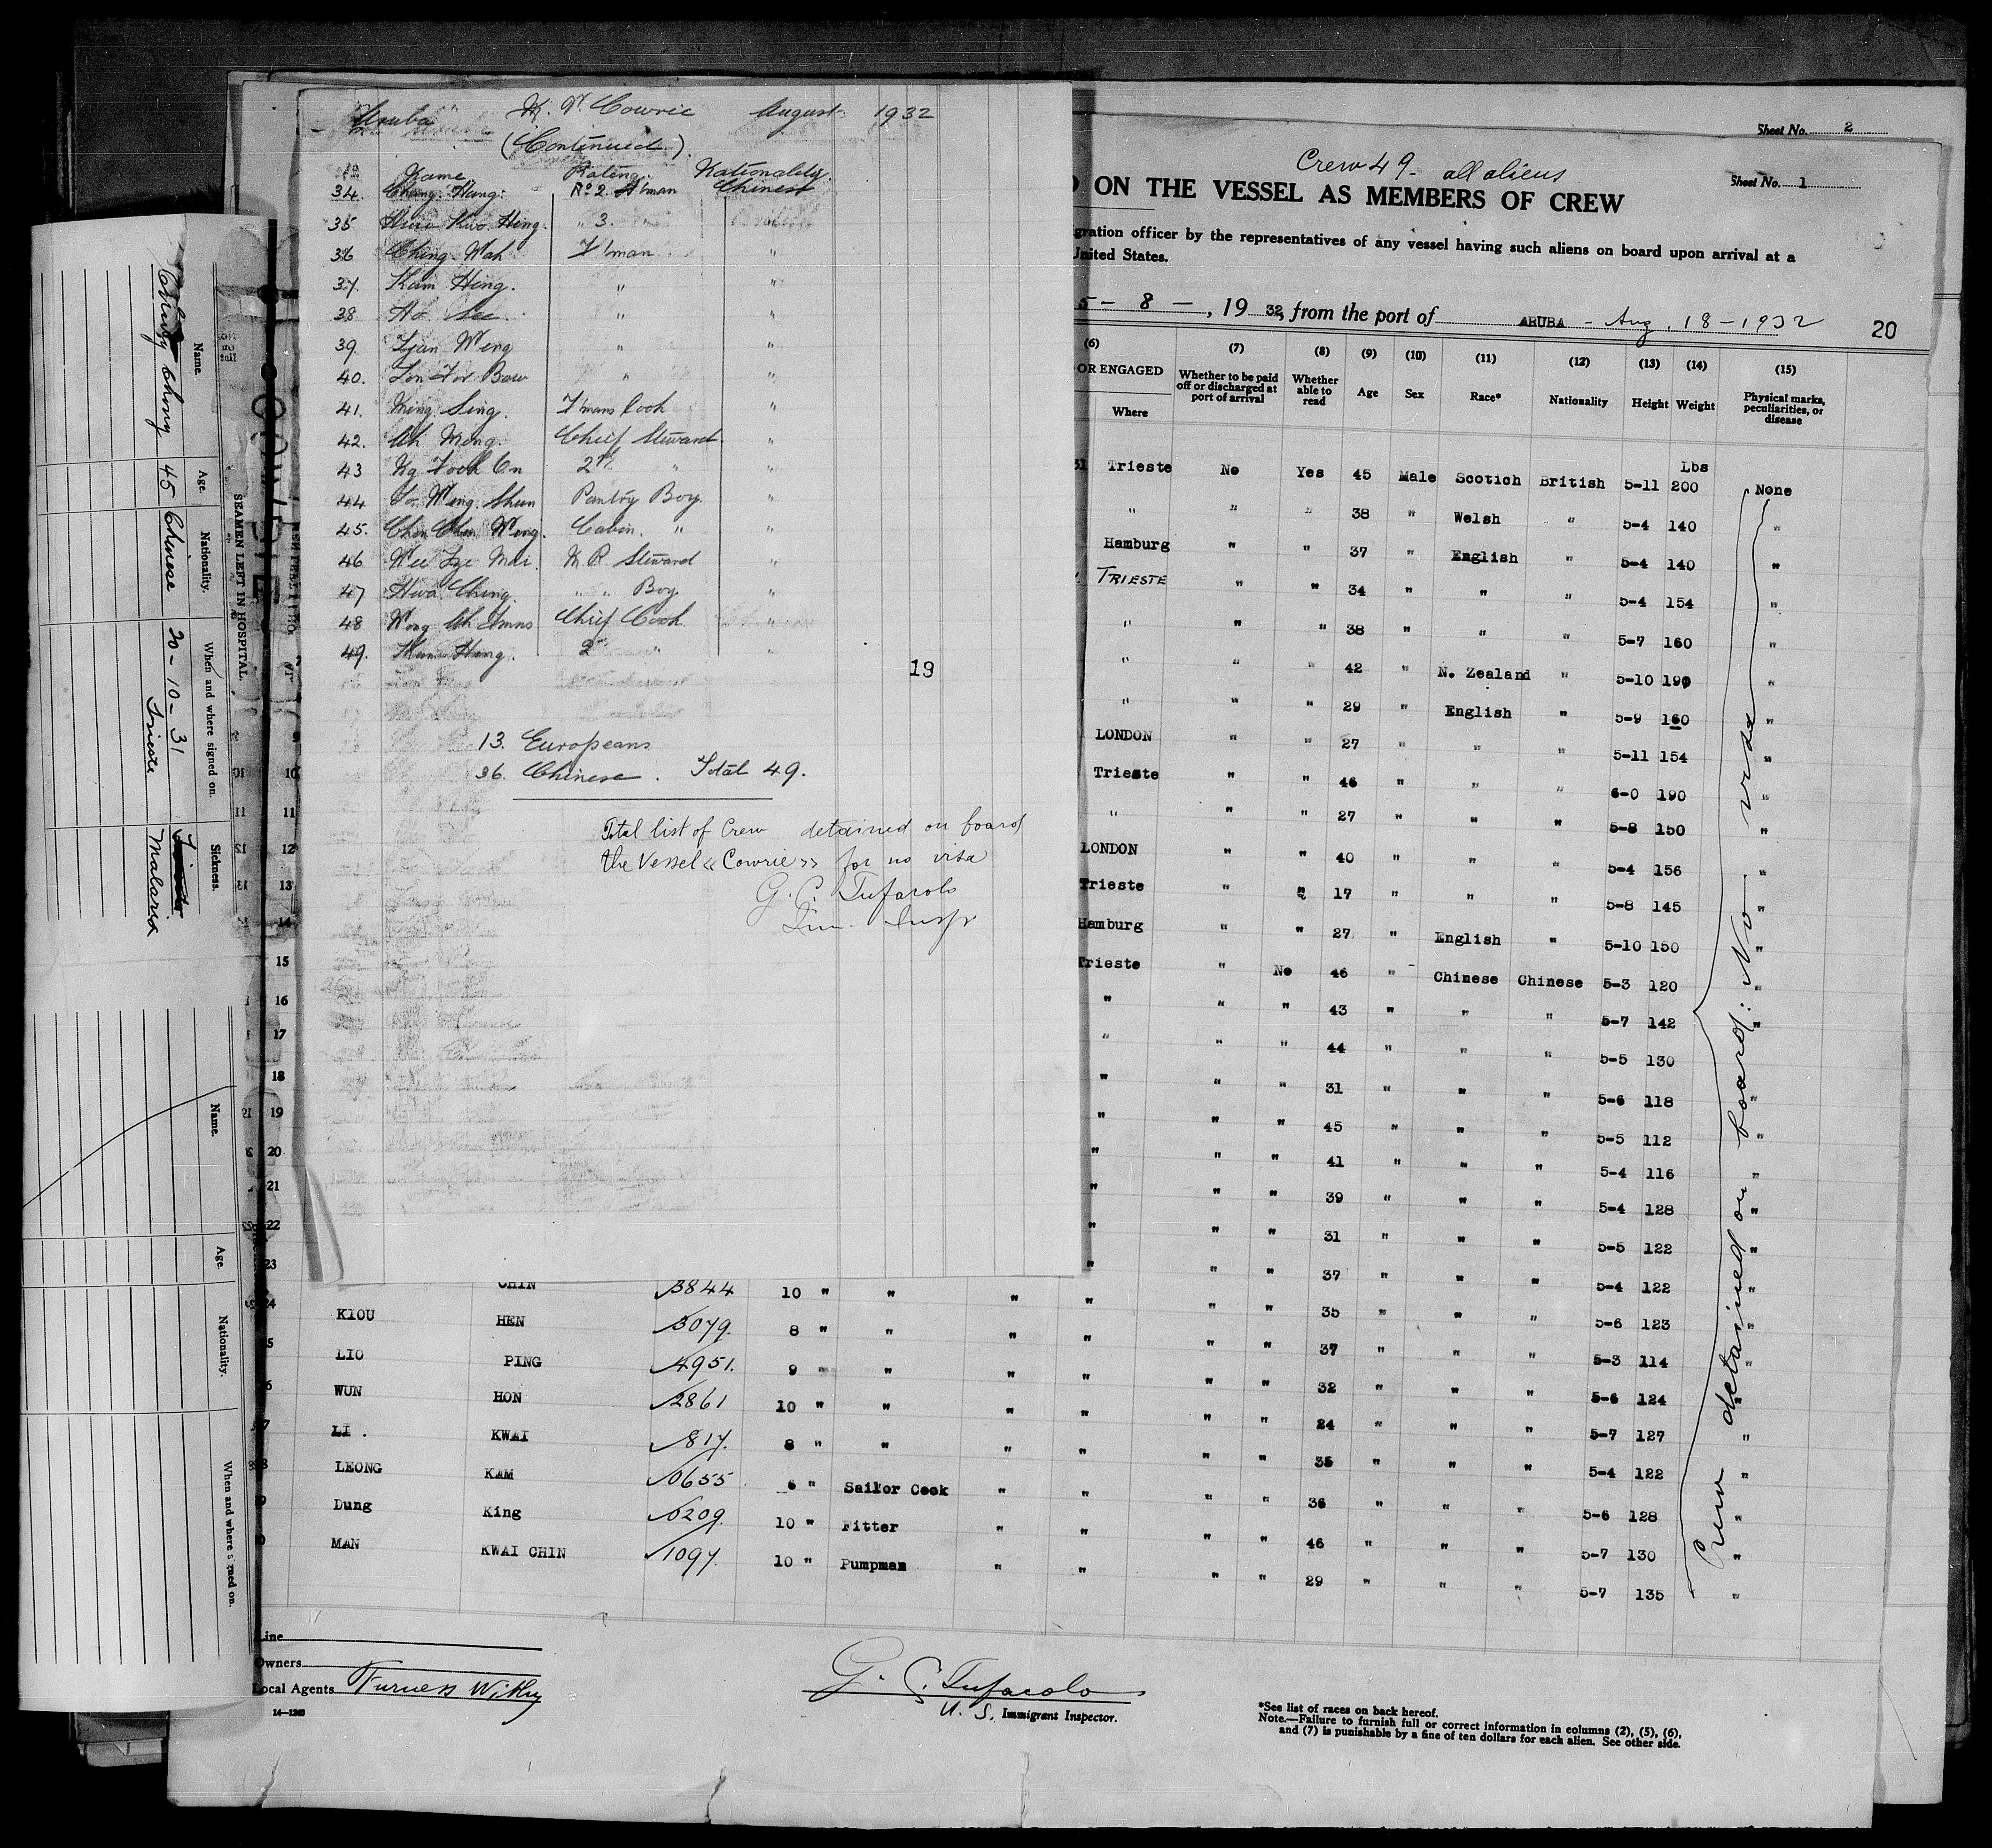 Aruba M.V. Cowrie August 1932
(Continued).
No Name Rating. Nationality.
34. Chang Hung. No 2. F'man Chinese
35 Kwo Hing. " 3. "
36 Ching Wah F'man "
37. Kam Hing. " "
38 Ho See " "
39. Weng " "
40. " "
41. Ming Sing. F'mans Cook "
42. Ah Meng. Chief Steward "
43 Ng Fook On 2nd " "
44 Weng Shun Pantry Boy "
45. Weng. Cabin. " "
46. M.R. Steward "
47 Hwa Ching. " " Boy. "
48 Wong Ah Chief Cook "
49. Kam Hong. 2nd " "
19
13. Europeans
36. Chinese. Total 49.
Total list of Crew detained on board
the Vessel «Cowrie» for no visa
G. C. Tufarolo
Imm. Insp.
Sheet No. 2
Crew 49 - all aliens
Sheet No. 1
ON THE VESSEL AS MEMBERS OF CREW
gration officer by the representatives of any vessel having such aliens on board upon arrival at a
United States.
5 - 8 -, 19 32, from the port of ARUBA - Aug. 18-1932 20
(6) (7) (8) (9) (10) (11) (12) (13) (14) (15)
OR ENGAGED Whether to be paid off or discharged at port of arrival Whether able to read Age Sex Race* Nationality Height Weight Physical marks, peculiarities, or disease
Where
31 Trieste No Yes 45 Male Scotich British 5-11 Lbs 200 None
" " " 38 " Welsh " 5-4 140 "
Hamburg " " 37 " English " 5-4 140 "
TRIESTE " " 34 " " " 5-4 154 "
" " " 38 " " " 5-7 160 "
" " " 42 " N. Zealand " 5-10 190 "
" " " 29 " English " 5-9 160 "
LONDON " " 27 " " " 5-11 154 "
Trieste " " 46 " " " 6-0 190 "
" " " 27 " " " 5-8 150 "
LONDON " " 40 " " " 5-4 156 "
Trieste " " 17 " " " 5-8 145 "
Hamburg " " 27 " English " 5-10 150 "
Trieste " No 46 " Chinese Chinese 5-3 120 "
" " " 43 " " " 5-7 142 "
" " " 44 " " " 5-5 130 "
" " " 31 " " " 5-6 118 "
" " " 45 " " " 5-5 112 "
" " " 41 " " " 5-4 116 "
" " " 39 " " " 5-4 128 "
" " " 31 " " " 5-5 122 "
" " " 37 " " " 5-4 122 "
CHIN 3844 10 " " " " " " 35 " " " 5-6 123 "
KIOU HEN 3079. 8 " " " " " " 37 " " " 5-3 114 "
LIO PING 4951. 9 " " " " " " 32 " " " 5-6 124 "
WUN HON 2861 10 " " " " " " 24 " " " 5-7 127 "
LI . KWAI 817. 8 " " " " " " 35 " " " 5-4 122 "
LEONG KAM 0655 6 " Sailor Cook " " " " 36 " " " 5-6 128 "
Dung King 0209. 10 " Fitter " " " " 46 " " " 5-7 130 "
MAN KWAI CHIN 1097. 10 " Pumpman " " " " 29 " " " 5-7 135 "
Crew detained on board: No visa
Line
Owners
Local Agents Furness Withy
14-1240
G. C. Tufarolo
U. S. Immigrant Inspector.
*See list of races on back hereof.
Note.—Failure to furnish full or correct information in columns (2), (5), (6),
and (7) is punishable by a fine of ten dollars for each alien. See other side.
SEAMEN LEFT IN HOSPITAL.
Name. Age. Nationality. When and where signed on. Sickness.
Chong 45 Chinese 20-10-31 Trieste Malaria
Name. Age. Nationality. When and where signed on.
9
10
11
12
13
14
15
16
17
18
19
20
21
22
23
24